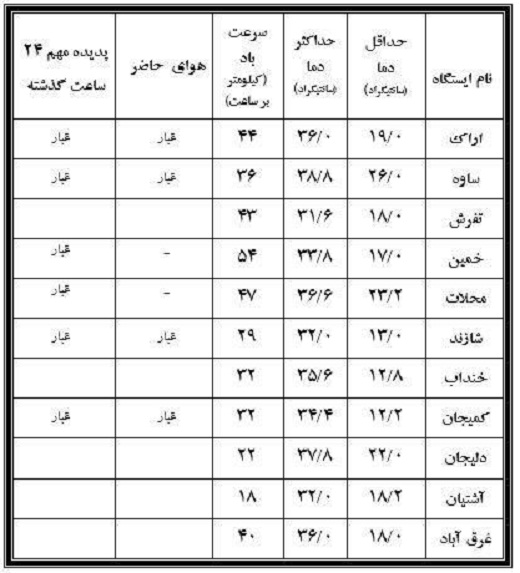 نام ایستگاه حداقل دما (سانتیگراد) حداکثر دما (سانتیگراد) سرعت باد (کیلومتر بر ساعت) هوای حاضر پدیده مهم ۲۴ ساعت گذشته
اراک ۱۹/۰ ۳۶/۰ ۴۴ غبار غبار
ساوه ۲۶/۰ ۳۸/۸ ۳۶ غبار غبار
تفرش ۱۸/۰ ۳۱/۶ ۴۳
خمین ۱۷/۰ ۳۳/۸ ۵۴ - غبار
محلات ۲۳/۲ ۳۶/۶ ۴۷ - غبار
شازند ۱۳/۰ ۳۲/۰ ۲۹ غبار غبار
خنداب ۱۲/۸ ۳۵/۶ ۳۲
کمیجان ۱۲/۲ ۳۴/۴ ۳۲ غبار غبار
دلیجان ۲۲/۰ ۳۷/۸ ۲۲
آشتیان ۱۸/۲ ۳۲/۰ ۱۸
غرق آباد ۱۸/۰ ۳۶/۰ ۴۰